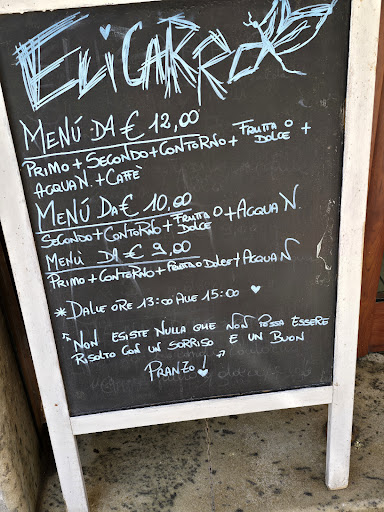 ELICARRO
MENÚ DA € 12,00
PRIMO + SECONDO + CONTORNO + FRUTTA O DOLCE +
ACQUA N. + CAFFÈ
MENÚ DA € 10,00
SECONDO + CONTORNO + FRUTTA O DOLCE + ACQUA N.
MENÙ DA € 9,00
PRIMO + CONTORNO + FRUTTA O DOLCE + ACQUA N
* DALLE ORE 13:00 ALLE 15:00 ♥
"NON ESISTE NULLA CHE NON POSSA ESSERE
RISOLTO CON UN SORRISO E UN BUON
PRANZO!"